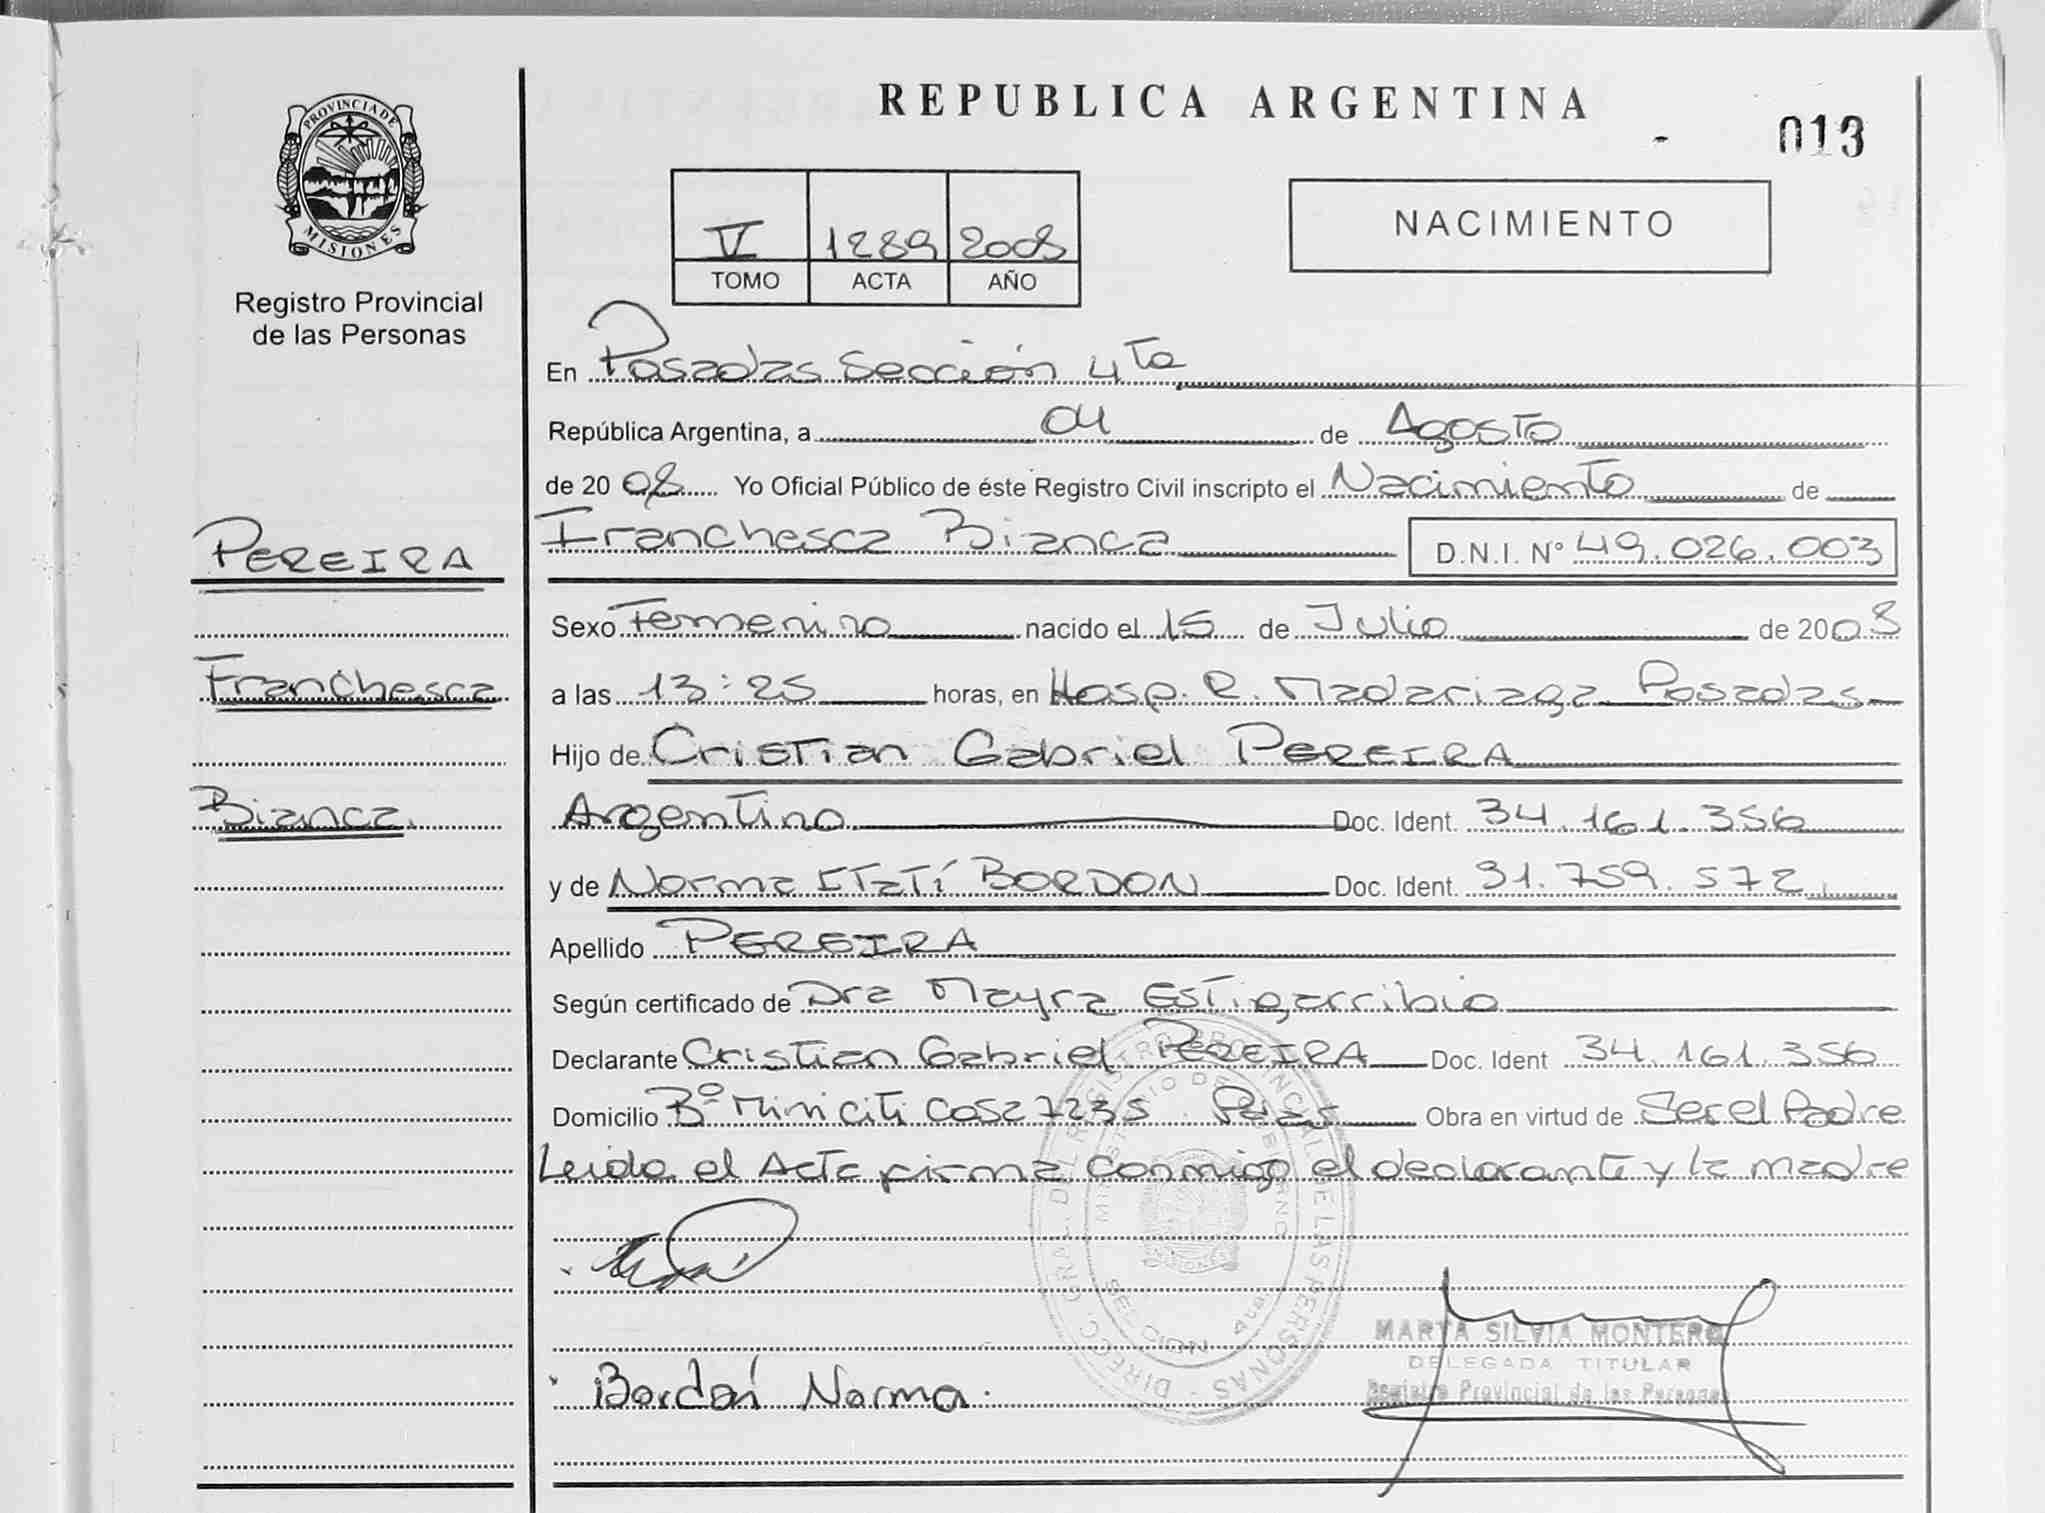 REPUBLICA ARGENTINA
013
PROVINCIA DE
MISIONES
Registro Provincial
de las Personas
V 1289 2008
TOMO ACTA AÑO
NACIMIENTO
En Posadas Sección 4ta
República Argentina, a 04 de Agosto
de 20 08 Yo Oficial Público de éste Registro Civil inscripto el Nacimiento de
PEREIRA
Franchesca Bianca D.N.I. Nº 49.026.003
Sexo Femenino nacido el 15 de Julio de 2008
Franchesca
a las 13:25 horas, en Hosp. R. Madariaga Posadas
Hijo de Cristian Gabriel PEREIRA
Bianca
Argentino Doc. Ident. 34.161.356
y de Norma Itatí BORDON Doc. Ident. 31.759.572
Apellido PEREIRA
Según certificado de Dra Mayra Estigarribia
Declarante Cristian Gabriel PEREIRA Doc. Ident 34.161.356
Domicilio Bº Miniciti Casa 7235 Pdas Obra en virtud de Ser el Padre
Leida el Acta firma conmigo el declarante y la madre
DIREC. GRAL. DEL REGISTRO PROVINCIAL DE LAS PERSONAS
MINISTERIO DE GOBIERNO
SECCION 4ta.
MARTA SILVIA MONTERO
DELEGADA TITULAR
Registro Provincial de las Personas
Bordón Norma.